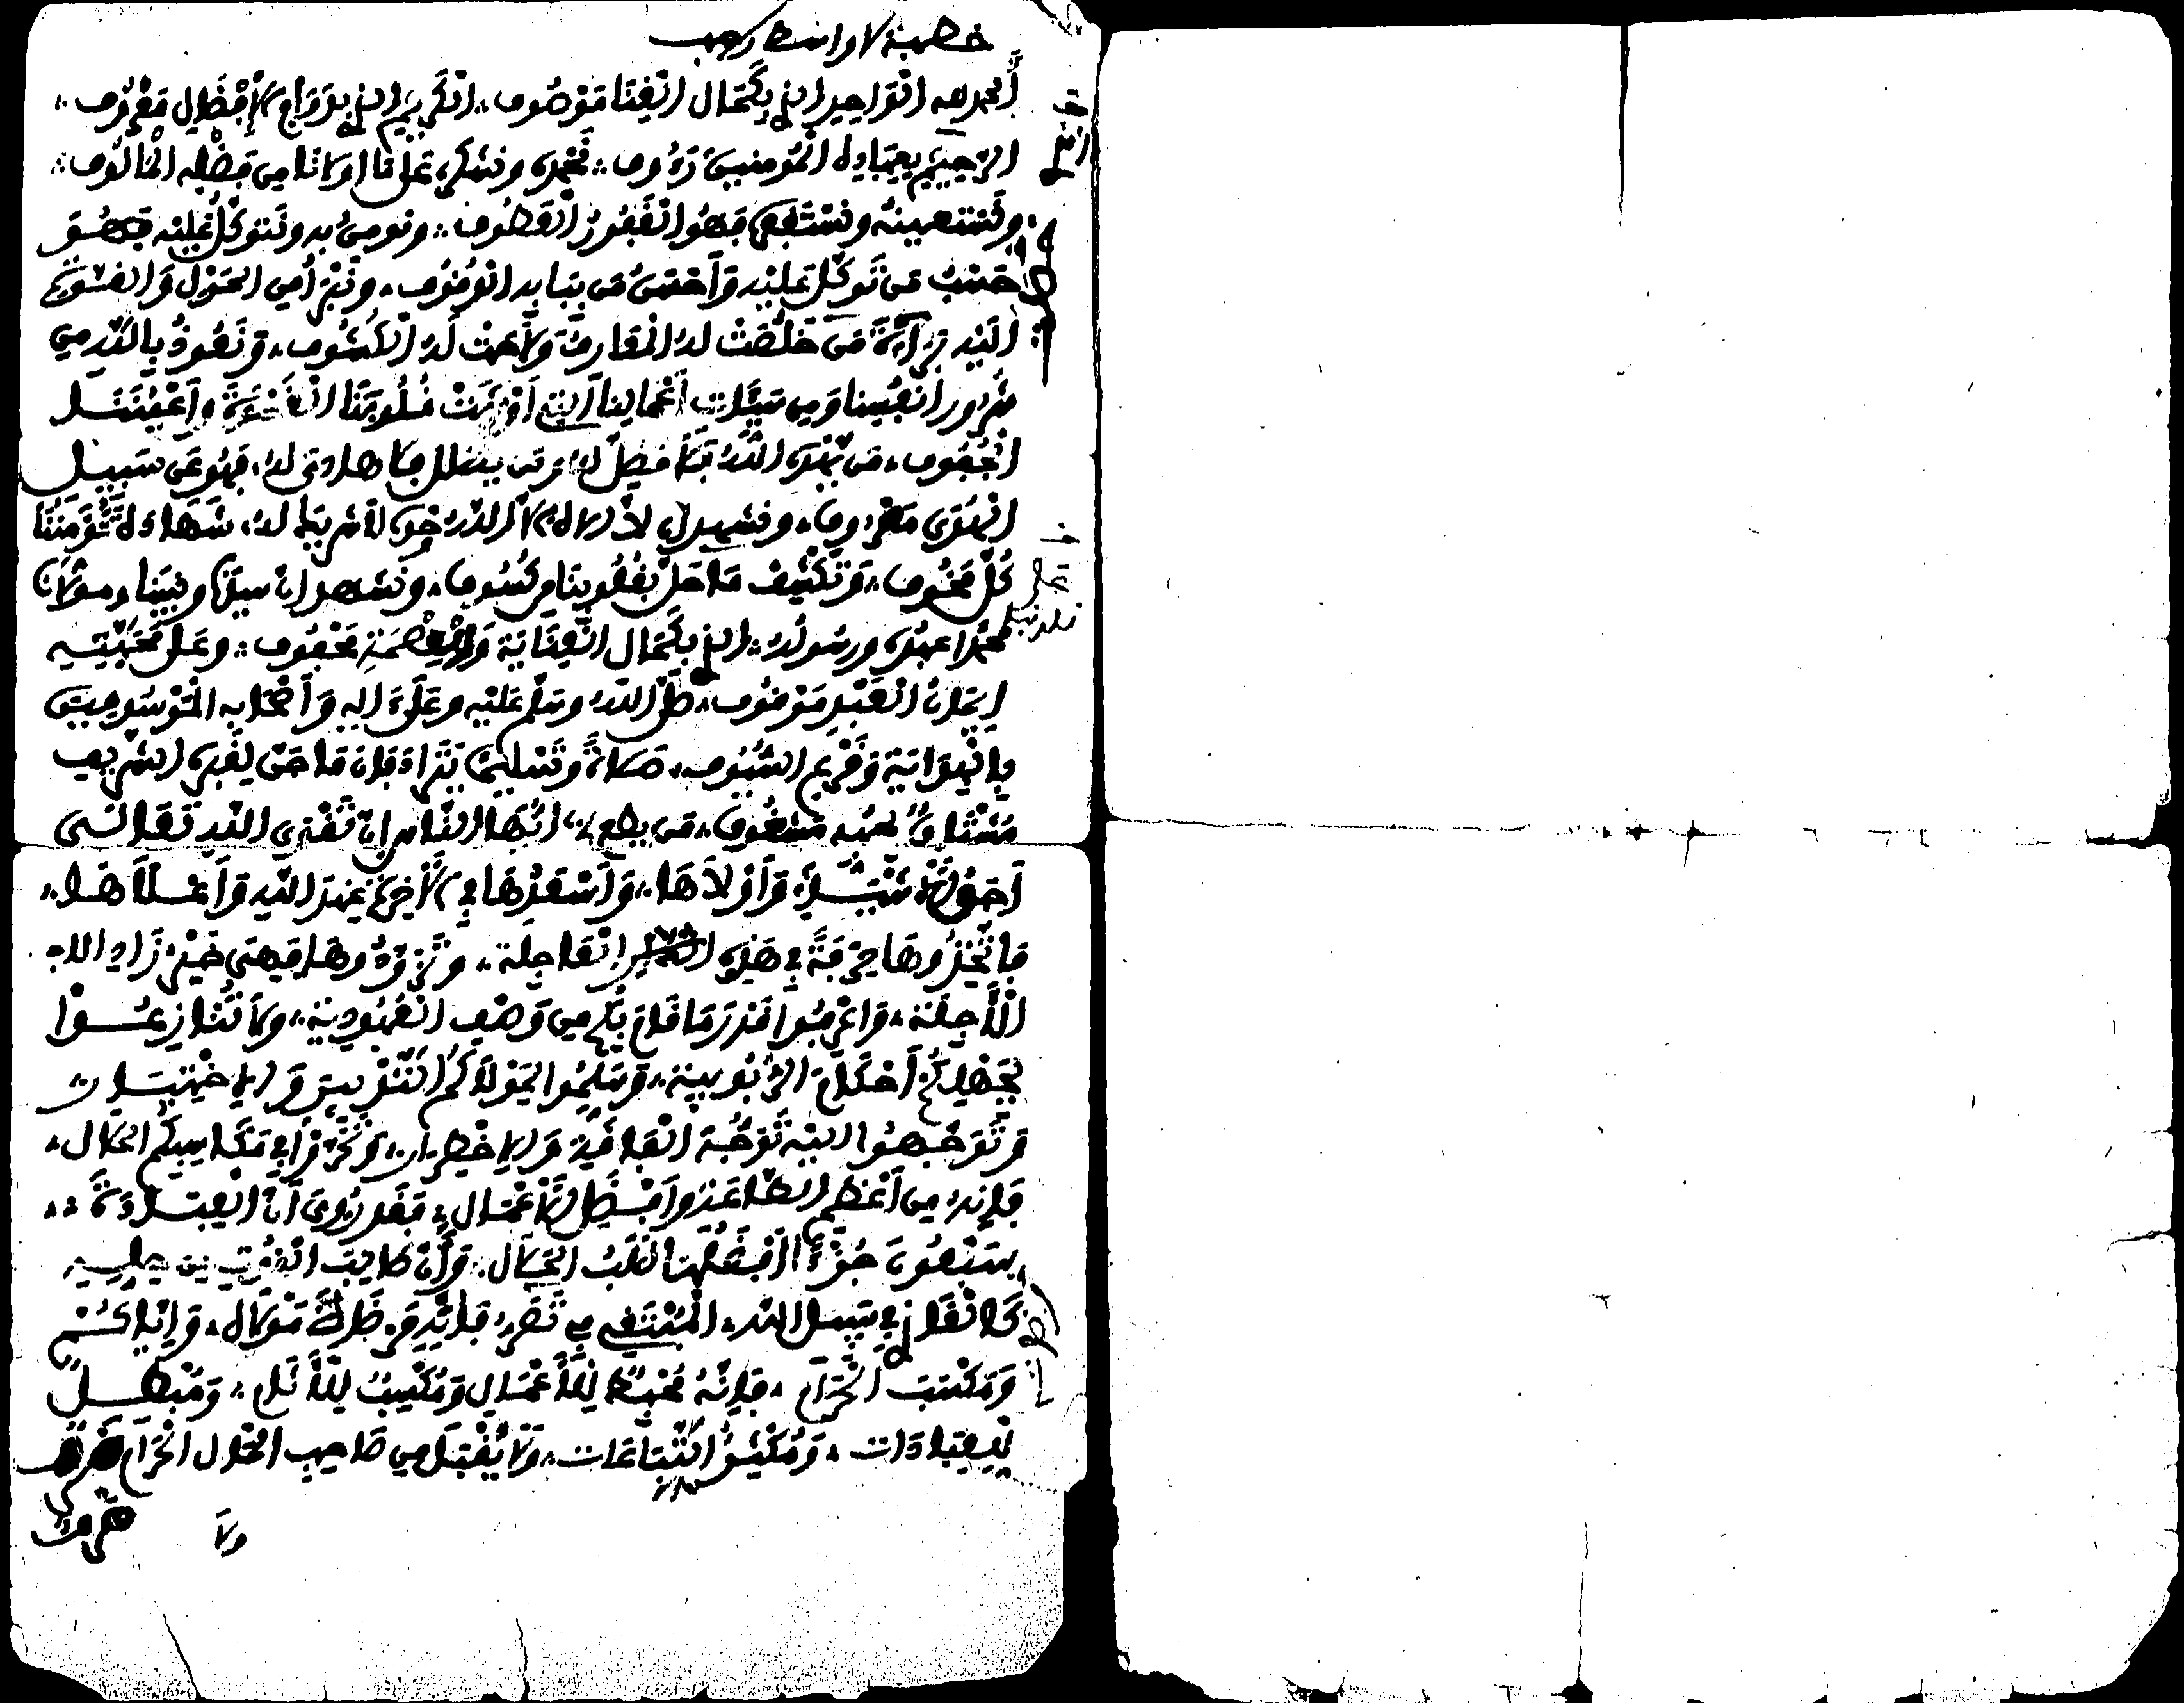 خطبة لاواسط رجب
الحمد لله الواحد الذي بكمال الغنا موصوف الكريم الذي بدوام الإفضال معروف
الرحيم بعباده المومنين رءوف نحمده ونشكره على ما اولانا من فضله المالوف
ونستعينه ونستغفره فهو الغفور العطوف ونومن به ونتوكل عليه فهو
حسب من توكل عليه وأحسن من ببابه الوقوف ونبرأ من الحول والقوة
اليه براءة من خلصت له المعارف ولاحت له الكشوف ونعوذ بالله من
شرور انفسنا ومن سيئات أعمالنا التي أورثت قلوبنا القسوة وأعيننا
الجفوف من يهده الله فلا مضل له ومن يضلل فلا هادي له فهو عن سبيل
الهدى مصروف ونشهد ان لا اله الا الله وحده لا شريك له شهادة تؤمننا
كل مخوف وتكشف ما حل بقلوبنا من كسوف ونشهد ان سيدنا ونبينا ومولانا
محمدا عبده ورسوله الذي بكمال العناية والعصمة محفوف وعلى محبته
إيمان العبد موقوف صلى الله وسلم عليه وعلى ءاله وأصحابه المتوسمين
بالهداية وقرع السيوف صلاة وتسليما يترادفان ما حن لقبره الشريف
مشتاق بحبه مشغوف من يطع ايها الناس ان تقوى الله تعالى
أحق شيء وأولاها وأسعدها في الآخرة عند الله وأعلاها
فاتخذوها حرفة في هذه الدار العاجلة وتزودوها فهي خير زاد الى
الآجلة واعرفوا قدر ما قام بكم من وصف العبودية ولا تنازعوا
بجهلكم أحكام الربوبية وسلموا لمولاكم التدبير والاختيار
وتوجهوا اليه توجه الفاقة والاضطرار وتحروا في مكاسبكم الحلال
فإنه من أعظم الطاعة وأفضل الأعمال فقد روي أن العبادة
سبعون جزءا أفضلها طلب الحلال وأن طالب القوت من حله
كالغازي في سبيل الله
ومكسب الحرام فإنه محبط للأعمال ومكسب للآثام ومبطل
للعبادات ولا يقبل من صاحب المال الحرام صرف
ولا